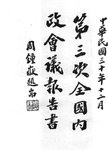 中華民國三十年十二月
第三次全國內
政會議報告書
周鍾嶽題耑